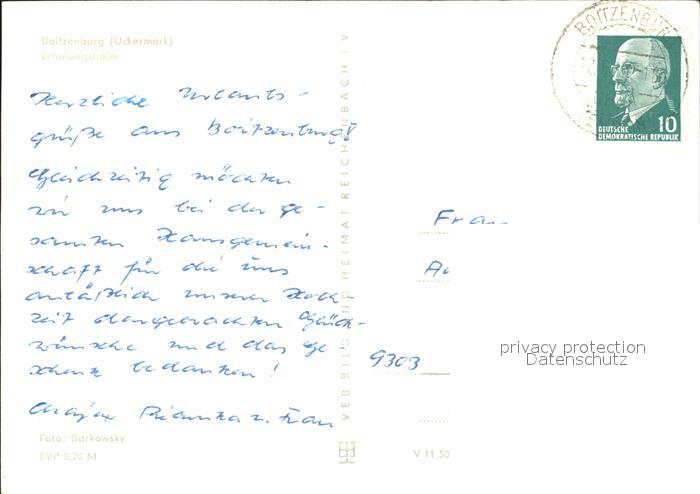 Boitzenburg (Uckermark)
Erholungsheim
Herzliche Urlaubs-
grüße aus Boitzenburg!
Gleichzeitig möchten
wir uns bei der ge-
samten Hausgemein-
schaft für die uns
anläßlich unserer Hoch-
zeit dargebrachten Glück-
wünsche und das Ge-
schenk bedanken!
u. Frau
Foto: Barkowsky
EVP 0,20 M
VEB BILD UND HEIMAT REICHENBACH I V
V 11 50
BOITZENBURG
10
DEUTSCHE
DEMOKRATISCHE REPUBLIK
Frau
9303
privacy protection
Datenschutz